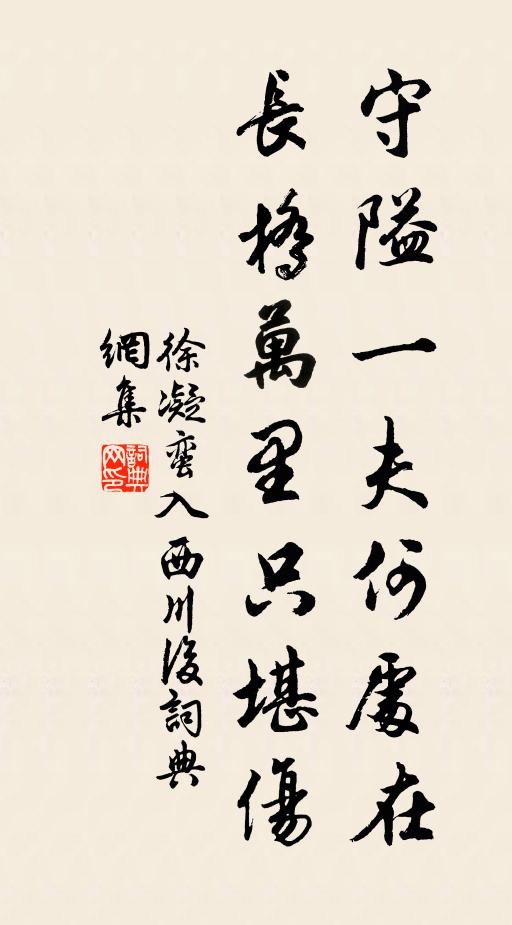 守隘一夫何處在
長橋萬里只堪傷
徐凝蠻入西川後詞典
網集
詞典網印